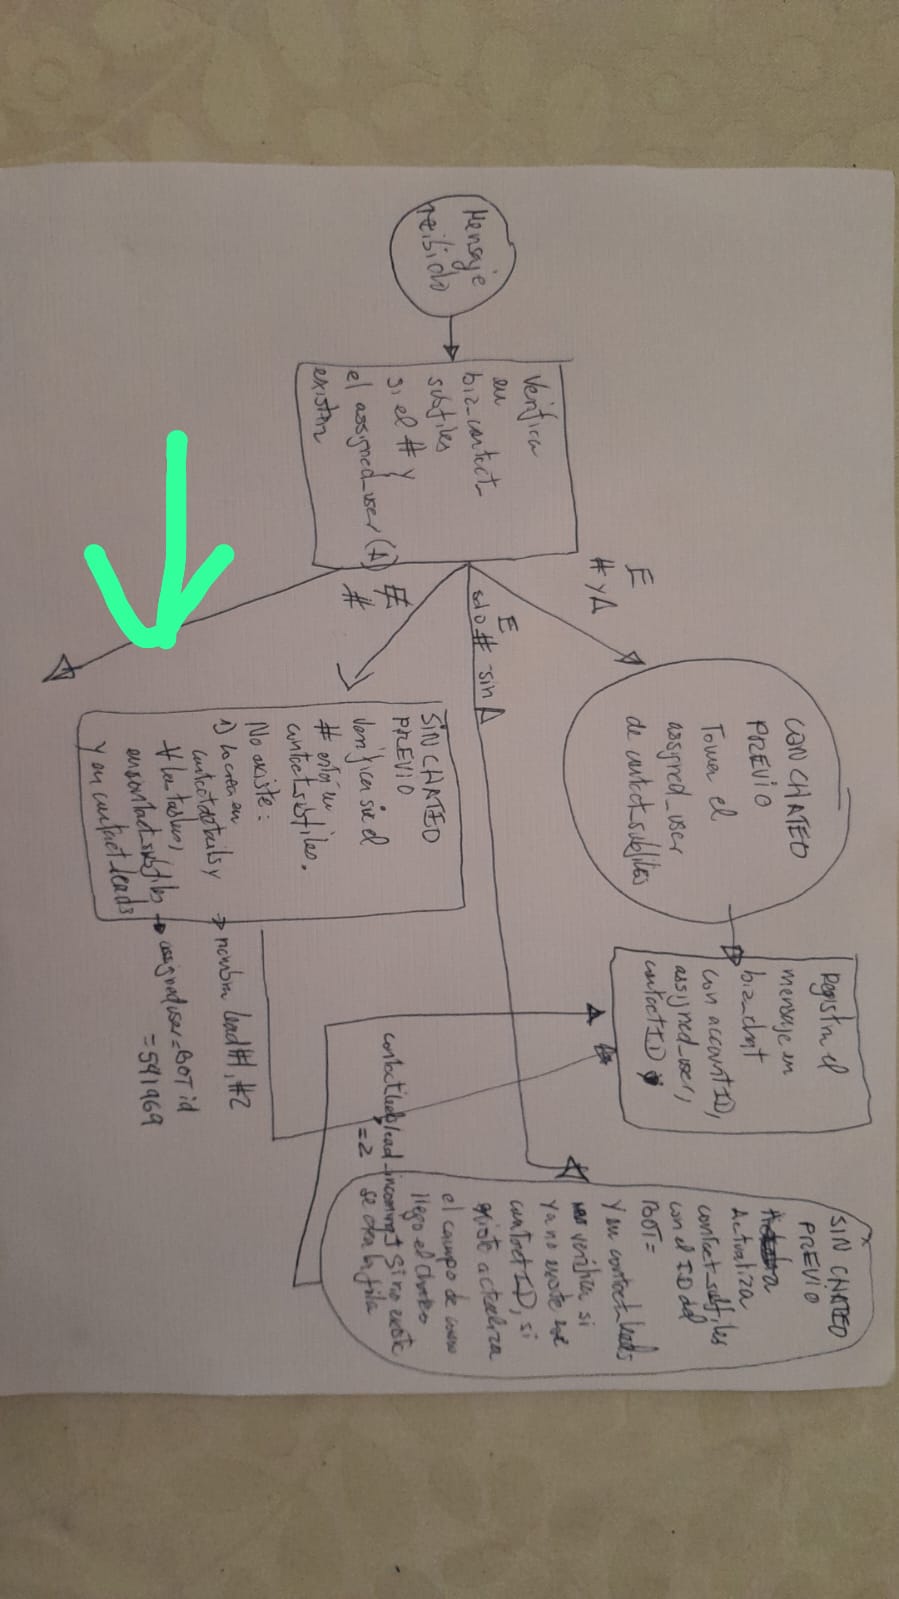 Mensaje
recibido
Verifica
en
biz_contact_
subfiles
si el # y
el assigned_user (A)
existen
E
# y A
E
solo # sin A
∄
#
CON CHATEO
PREVIO
Toma el
assigned_user
de contact_subfiles
Registra el
mensaje en
biz_chat
con accountID,
assigned_user,
contactID
SIN CHATEO
PREVIO
Actualiza
contact_subfiles
con el ID del
BOT=
Y en contact_leads
verifica si
ya no existe ese
contactID, si
existe actualiza
el campo de como
llego el Chateo
Si no existe
se crea la fila
SIN CHATEO
PREVIO
Verifica si el
# está en
contact_subfiles.
No existe:
1) Lo crea en
contactdetails y
en contact_subfiles
y en contact_leads
nombre lead #1, #2
assigneduser=BOT id
=591969
lead_incoming
=2